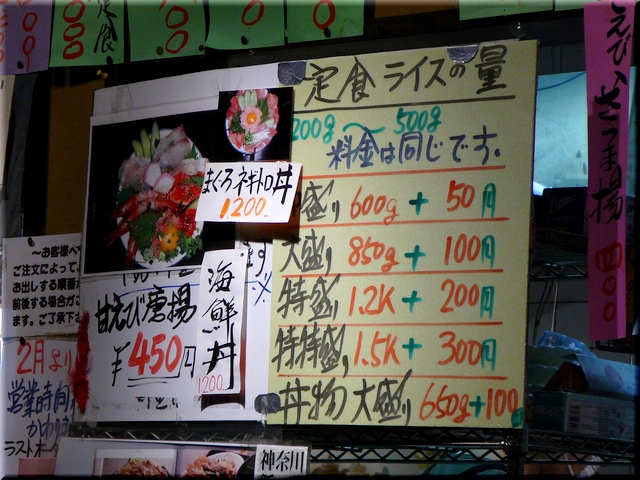 定食
定食ライスの量
200g～500g
料金は同じです。
盛り 600g + 50円
大盛り 850g + 100円
特盛り 1.2K + 200円
特特盛り 1.5K + 300円
丼物大盛り 650g+100
まぐろネギトロ丼
1200
海鮮丼
1200
甘えび唐揚
¥450円
えび、さつま揚
四〇〇
～お客様へ
ご注文によって、
お出しする順番
前後する場合がご
ます。ご了承下
2月より
営業時間
かわり
ラストオー
神奈川